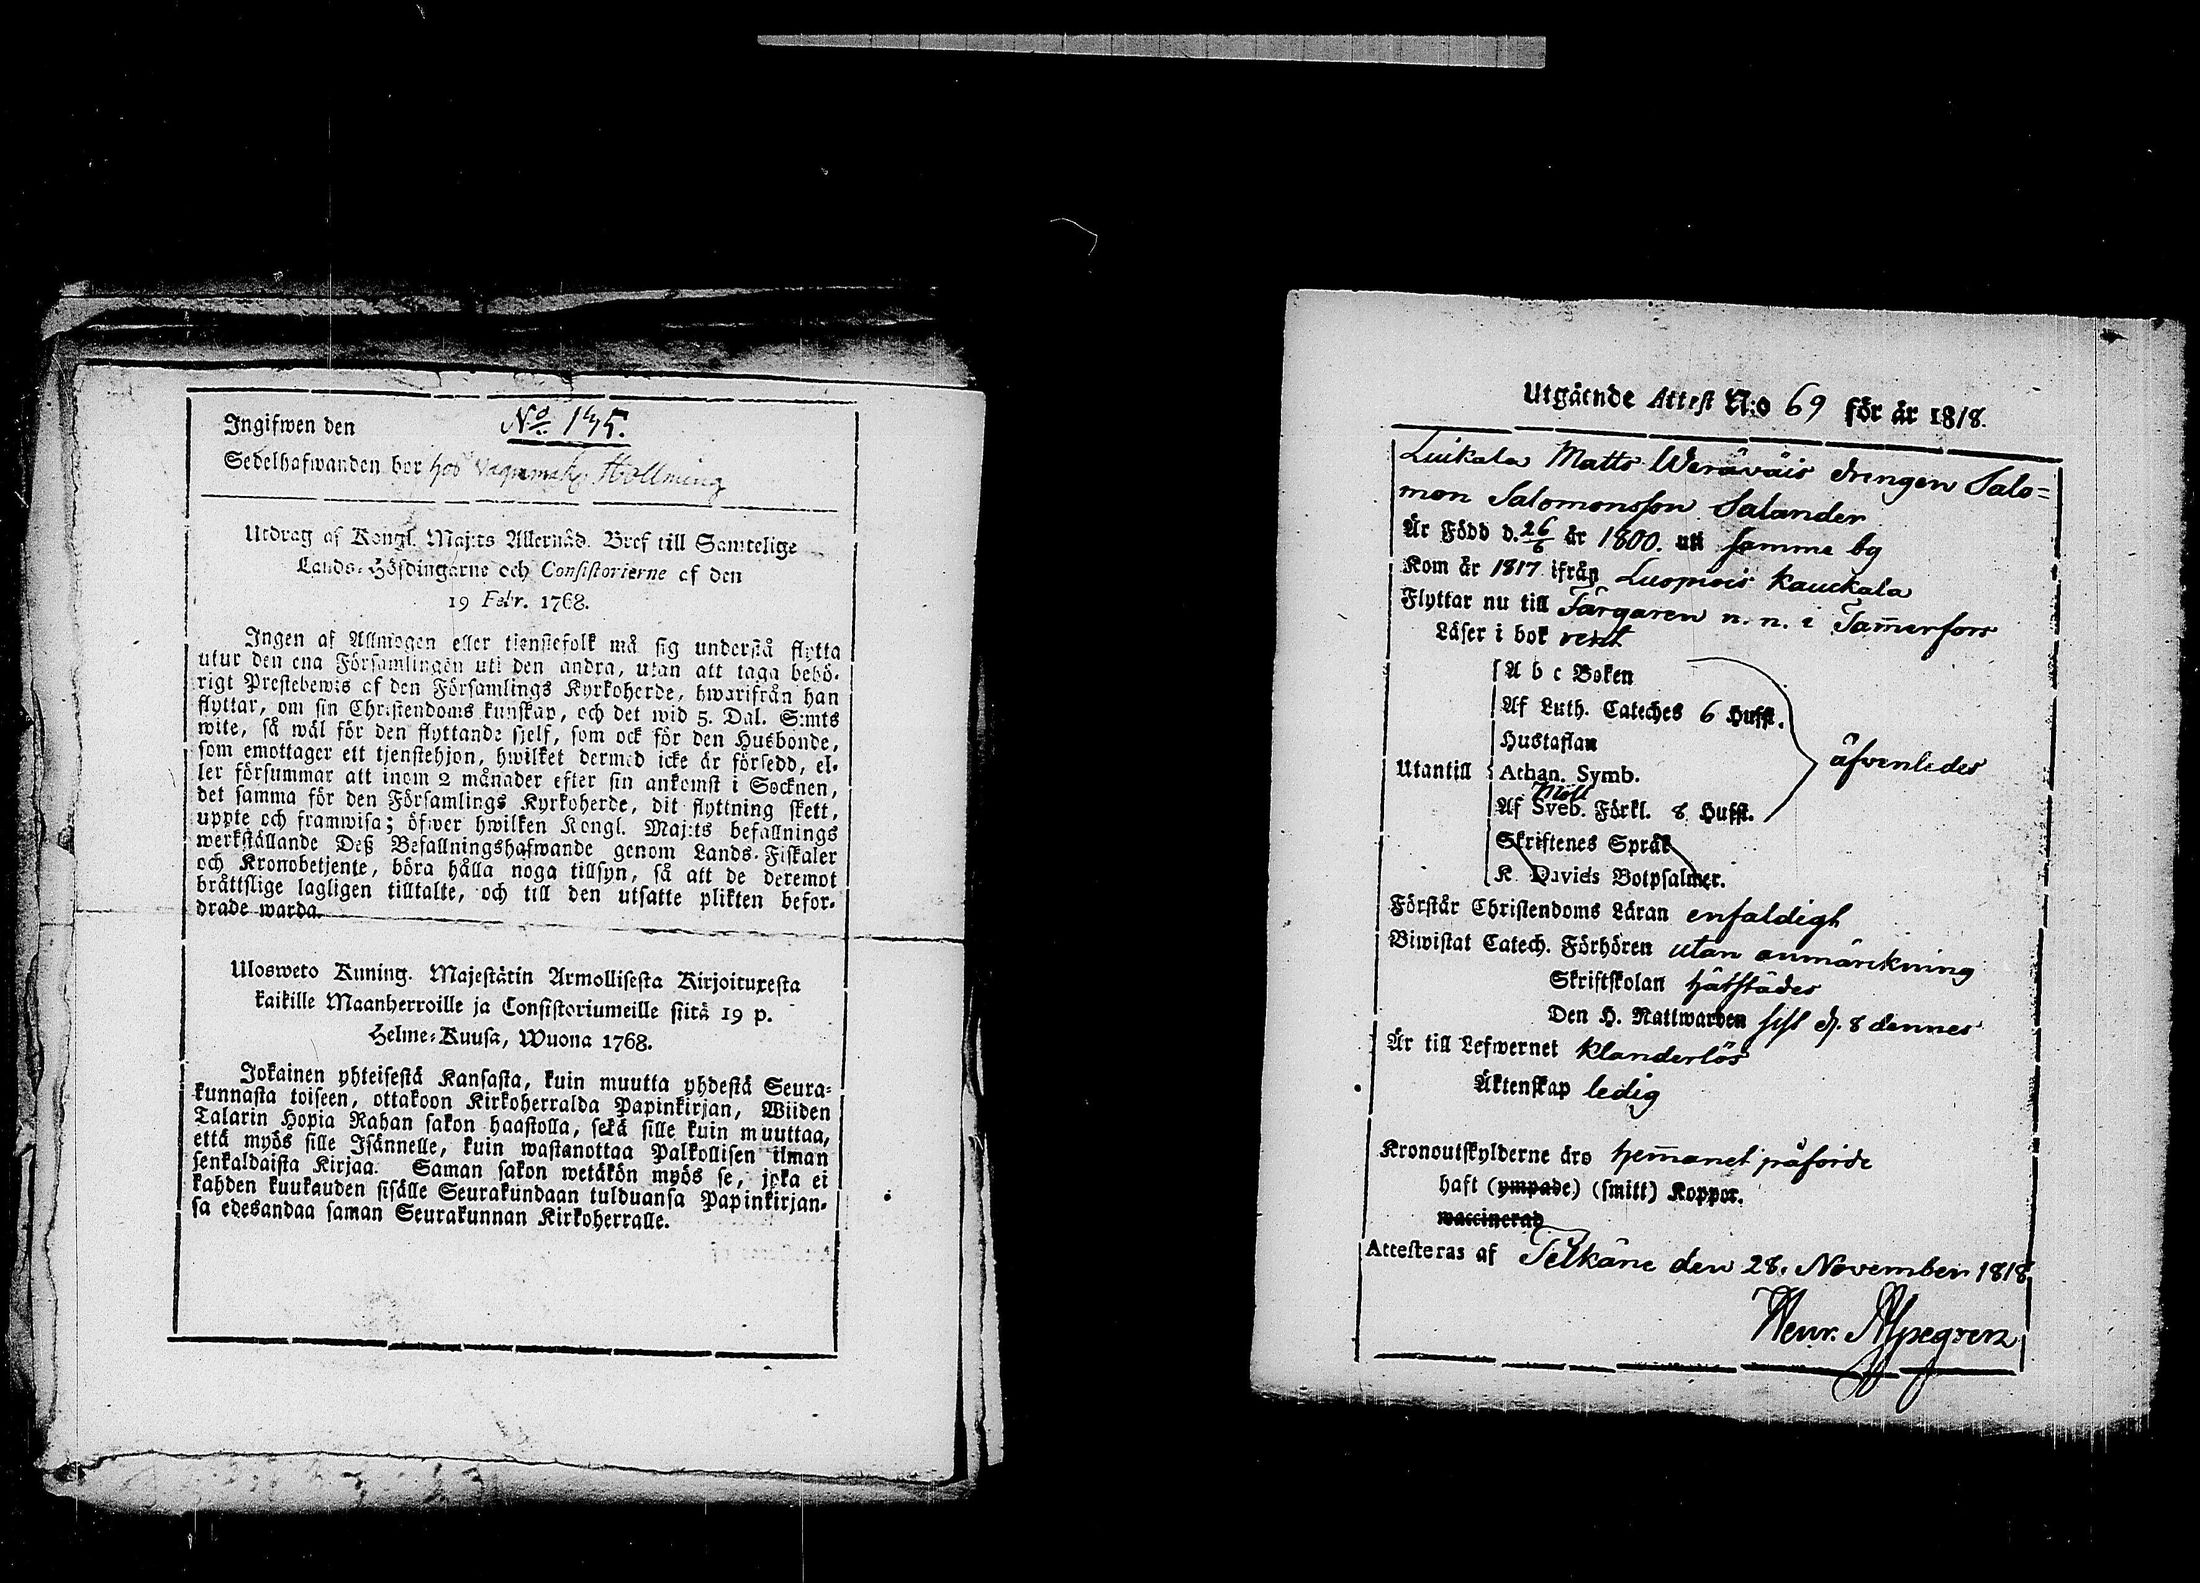 Ingifwen den No 135.
Sedelhafwanden bor hos Vagnmak. Hollming
Utdrag af Kongl. Maj:ts Allernåd. Bref till Samtelige
Lands-Höfdingarne och Consistorierne af den
19 Febr. 1768.
Ingen af Allmogen eller tienstefolk må sig understå flytta
utur den ena Församlingen uti den andra, utan att taga behö-
rigt Prestebewis af den Församlings Kyrkoherde, hwarifrån han
flyttar, om sin Christendoms kunskap, och det wid 5. Dal. S:mts
wite, så wäl för den flyttande sjelf, som ock för den Husbonde,
som emottager ett tjenstehjon, hwilket dermed icke är försedd, el-
ler försummar att inom 2 månader efter sin ankomst i Socknen,
det samma för den Församlings Kyrkoherde, dit flyttning skett,
uppte och framwisa; öfwer hwilken Kongl. Maj:ts befallnings
werkställande Deß Befallningshafwande genom Lands-Fiskaler
och Kronobetjente, böra hålla noga tillsyn, så att de deremot
bråttslige lagligen tilltalte, och till den utsatte plikten befor-
drade warda.
Ulosweto Kuning. Majestätin Armollisesta Kirjoituxesta
kaikille Maanherroille ja Consistoriumeille siitä 19 p.
Helme-Kuusa, Wuona 1768.
Jokainen yhteisestä Kansasta, kuin muutta yhdestä Seura-
kunnasta toiseen, ottakoon Kirkoherralda Papinkirjan, Wiiden
Talarin Hopia Rahan sakon haastolla, sekä sille kuin muuttaa,
että myös sille Isännelle, kuin wastanottaa Palkollisen ilman
senkaldaista Kirjaa. Saman sakon wetäkön myös se, joka ei
kahden kuukauden sisälle Seurakundaan tulduansa Papinkirjan-
sa edesandaa saman Seurakunnan Kirkoherralle.
Utgående Attest N:o 69 för år 1818.
Luikala Matts Weräväis drengen Salo=
mon Salomonsson Salander
Är Född d. 26/6 år 1800. uti samme by
Kom år 1817 ifrån Luopiois Kaukala
Flyttar nu till Färgaren n. n. i Tam̅erfors
Läser i bok rent
A b c Boken
Af Luth. Cateches 6 Hufst.
Hustaflan
Utantill Athan. Symb. äfvenledes
Moll
Af Sveb. Förkl. 8 Hufst.
Skriftenes Språk
K. Davids Botpsalmer.
Förstår Christendoms Läran enfaldigt
Biwistat Catech. Förhören utan anmärkning
Skriftskolan härstädes
Den H. Nattwarden sist d. 8 dennes
Är till Lefwernet klanderlös
Äktenskap ledig
Kronoutskylderne äro hem̅anet påförde
haft (ympade) (smitt) Koppor.
waccinerad
Attesteras af Pelkäne den 28. November 1818
Henr. Alpegren